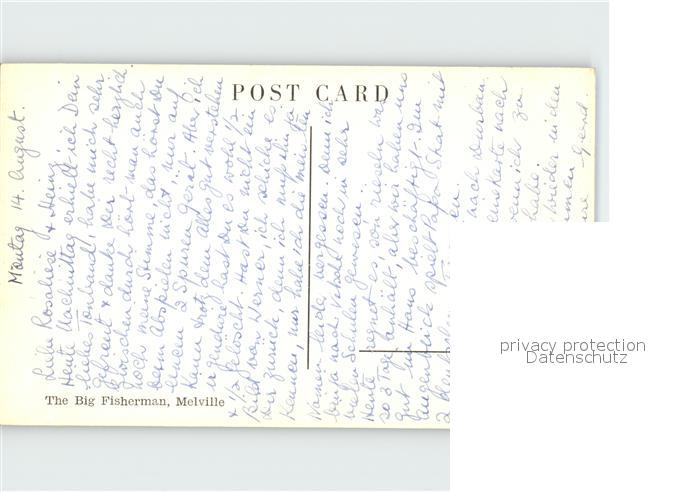 POST CARD
Montag 14. August.
Liebe Rosaliese & Heinz
Heute Nachmittag erhielt ich Dein
liebes Tonband, habe mich sehr
gefreut & danke Dir recht herzlich
zwischen durch hört man auch
noch meine Stimme das hörst Du
beim Abspielen nicht, nur auf
einem 2 Spuren gerät. Aber ich
kann trotzdem alles gut verstehen
irgendwie hast Du es wohl 1/2
& 1/2 gelöscht. Hast Du nicht ein
Bild von Werner, ich schicke es
Dir zurück, denn ich muss ihn ja
kennen, nur habe ich die
vergessen. Denn ich
bin ja nach wohl noch in sehr
vielen Schulen gewesen.
Heute regnet es, so
so 3 Tage anhält, aber wir haben uns
gut im Haus beschäftigt. Im
Augenblick spielt Skat mit
2
nach Durban.
eine Karte nach
wenn ich zu
habe.
wieder in den
The Big Fisherman, Melville
privacy protection
Datenschutz